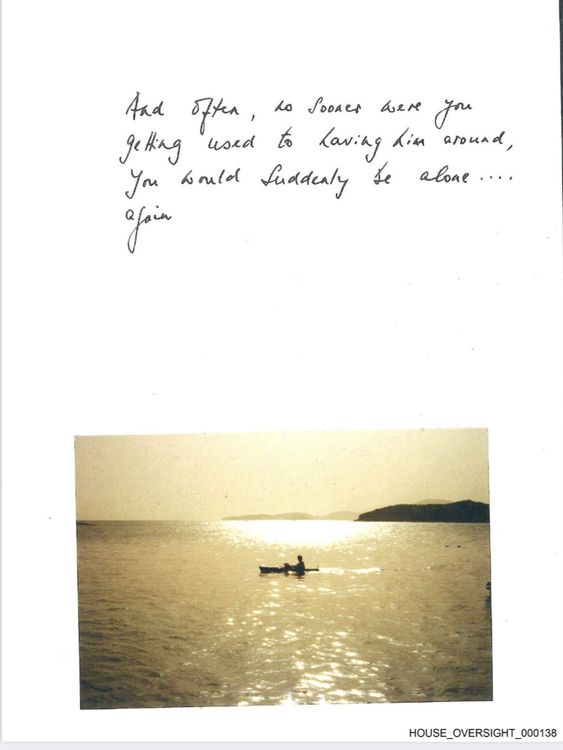 And often, no sooner were you
getting used to having him around,
You would suddenly be alone....
again
HOUSE_OVERSIGHT_000138